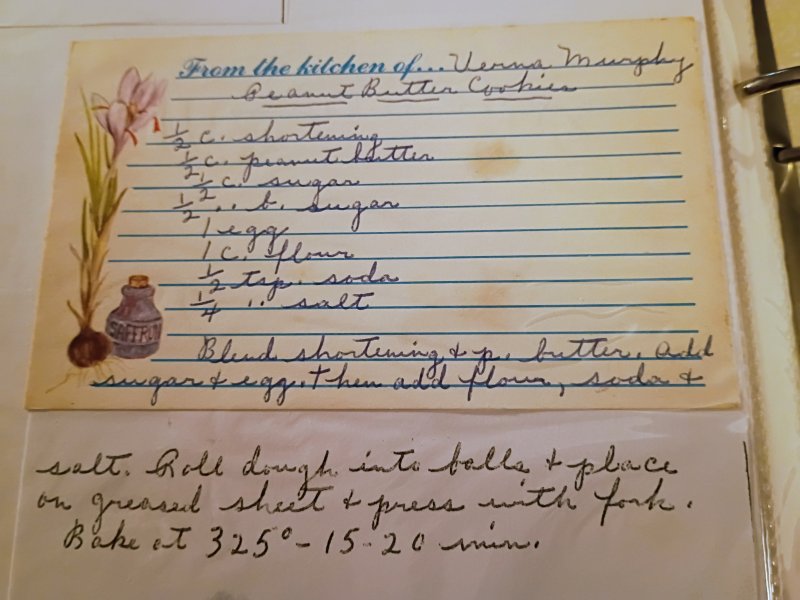 From the kitchen of... Verna Murphy
Peanut Butter Cookies
1/2 c. shortening
1/2 c. peanut butter
1/2 c. sugar
1/2 " b. sugar
1 egg
1 c. flour
1/2 tsp. soda
1/4 " salt
SAFFRON
Blend shortening & p. butter. Add
sugar & egg. Then add flour, soda &
salt. Roll dough into balls & place
on greased sheet & press with fork.
Bake at 325° - 15-20 min.